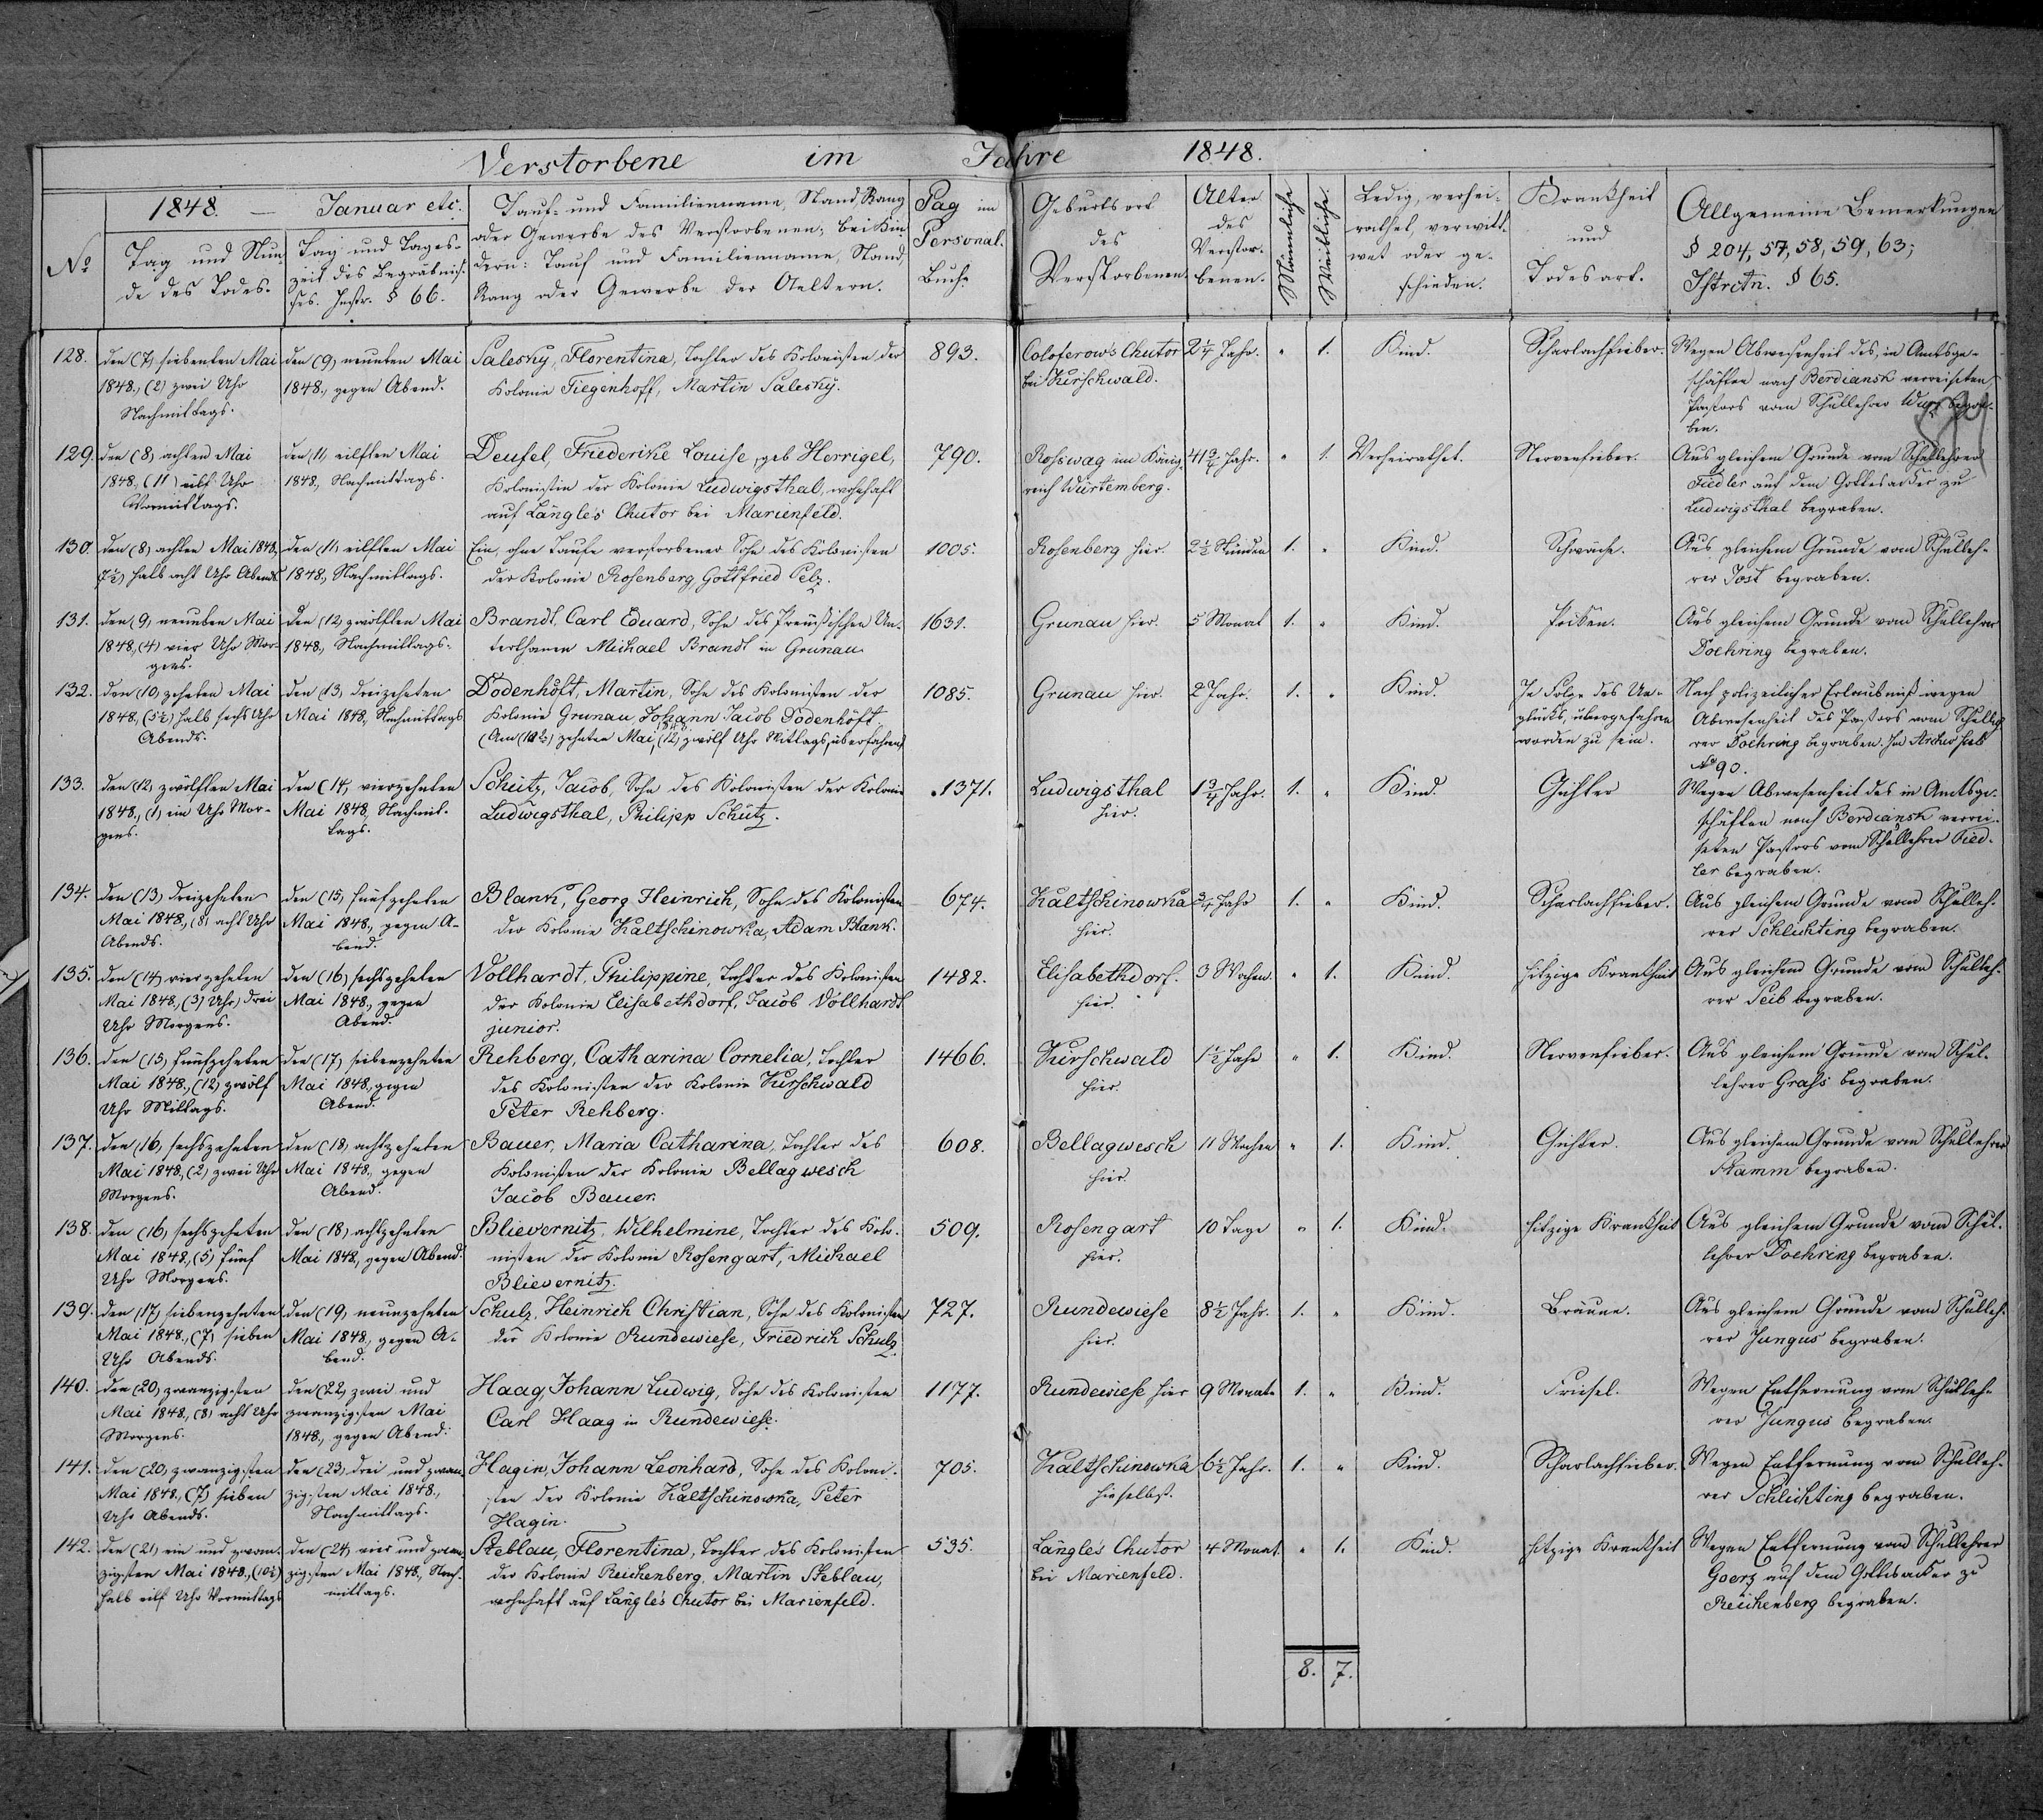 Verstorbene im Jahre 1848.
1848. — Januar etc.
No
Tag und Stun-
de des Todes.
Tag und Tages-
zeit des Begräbnis-
ses. Instr. § 66.
Tauf- und Familienname, Stand, Rang
oder Gewerbe des Verstorbenen; bei Kin-
dern: Tauf und Familienname, Stand,
Rang oder Gewerbe der Aeltern.
Pag im
Personal.
Buche
Geburtsort
des
Verstorbenen.
Alter
des
Verstor-
benen.
Männliche
Weibliche.
Ledig, verhei-
rathet, verwitt-
wet oder ge-
schieden.
Krankheit
und
Todesart.
Allgemeine Bemerkungen
§ 204, 57, 58, 59, 63;
Istrctn. § 65.
128.
den (7) siebenten Mai
1848., (2) zwei Uhr
Nachmittags.
den (9) neunten Mai
1848., gegen Abend.
Salesky, Florentina, Tochter des Kolonisten der
Kolonie Tiegenhoff, Martin Salesky.
893.
Coloferow's Chutor
bei Kurschwald.
2 1/4 Jahr.
"
1.
Kind.
Scharlachfieber.
Wegen Abwesenheit des, in Amtsge-
schäften nach Berdiansk verreiseten
Pastors vom Schullehrer begra-
ben.
129.
den (8) achten Mai
1848, (11) eilf Uhr
Vormittags.
den (11) eilften Mai
1848., Nachmittags.
Deufel, Friederike Louise, geb Herrigel,
Kolonistin der Kolonie Ludwigsthal, wohnhaft
auf Längle's Chutor bei Marienfeld.
790.
Rosswag im König-
reich Würtemberg.
41 3/4 Jahr.
"
1.
Verheirathet.
Nervenfieber.
Aus gleichem Grunde vom Schullehrer
Fiedler auf dem Gottesacker zu
Ludwigsthal begraben.
130.
den (8) achten Mai 1848,
(7½) halb acht Uhr Abends
den (11) eilften Mai
1848., Nachmittags.
Ein, ohne Taufe verstorbener Sohn des Kolonisten
der Kolonie Rosenberg, Gottfried Pelz.
1005.
Rosenberg hier.
2½ Stunden
1.
"
Kind.
Schwäche.
Aus gleichem Grunde vom Schulleh-
rer Jost begraben.
131.
den (9) neunten Mai
1848, (4) vier Uhr Mor-
gens.
den (12) zwölften Mai
1848., Nachmittags.
Brandt, Carl Eduard, Sohn des Preußischen Un-
terthanen Michael Brandt in Grunau
1631.
Grunau hier.
5 Monat
1.
"
Kind.
Pocken.
Aus gleichem Grunde vom Schullehrer
Doehring begraben.
132.
den (10) zehnten Mai
1848., (5½) halb sechs Uhr
Abends.
den (13) dreizehnten
Mai 1848., Nachmittags
Dodenhöft, Martin, Sohn des Kolonisten der
Kolonie Grunau, Johann Jacob Dodenhöft.
(Am (10) zehnten Mai, (12) zwölf Uhr Mittags, überfahren)
1085.
Grunau hier.
2 Jahr.
1.
"
Kind.
In Folge des Un-
glücks, übergefahren
worden zu sein.
Nach polizeilicher Erlaubniß wegen
Abwesenheit des Pastors vom Schulleh-
rer Doehring begraben. Im Archiv sub
No 90.
133.
den (12) zwölften Mai
1848., (1) ein Uhr Mor-
gens.
den (14) vierzehnten
Mai 1848, Nachmit-
tags.
Schütz, Jacob, Sohn des Kolonisten der Kolonie
Ludwigsthal, Philipp Schütz.
1371.
Ludwigsthal
hier.
1 3/4 Jahr.
1.
"
Kind.
Gichter
Wegen Abwesenheit des in Amtsge-
schäften nach Berdiansk verrei-
seten Pastors vom Schullehrer Fied-
ler begraben.
134.
den (13) dreizehnten
Mai 1848., (8) acht Uhr
Abends.
den (15) fünfzehnten
Mai 1848., gegen A-
bend.
Blank, Georg Heinrich, Sohn des Kolonisten
der Kolonie Kaltschinowka, Adam Blank.
674.
Kaltschinowka
hier.
3/4 Jahr
1.
"
Kind.
Scharlachfieber.
Aus gleichem Grunde vom Schulleh-
rer Schlichting begraben.
135.
den (14) vierzehnten
Mai 1848, (3) Uhr) drei
Uhr Morgens.
den (16) sechszehnten
Mai 1848., gegen
Abend.
Vollhardt, Philippine, Tochter des Kolonisten
der Kolonie Elisabethdorf, Jacob Vollhardt
junior.
1482.
Elisabethdorf.
hier.
3 Wochen.
"
1.
Kind.
hitzige Krankheit
Aus gleichem Grunde vom Schulleh-
rer Seib begraben.
136.
den (15) fünfzehnten
Mai 1848., (12) zwölf
Uhr Mittags.
den (17) siebenzehnten
Mai 1848, gegen
Abend.
Rehberg, Catharina Cornelia, Tochter
des Kolonisten der Kolonie Kurschwald
Peter Rehberg.
1466.
Kurschwald
hier.
1½ Jahr
"
1.
Kind.
Nervenfieber.
Aus gleichem Grunde vom Schul-
lehrer Grass begraben.
137.
den (16) sechszehnten
Mai 1848., (2) zwei Uhr
Morgens.
den (18) achtzehnten
Mai 1848., gegen
Abend.
Bauer, Maria Catharina, Tochter des
Kolonisten der Kolonie Bellagwesch
Jacob Bauer.
608.
Bellagwesch
hier.
11 Wochen
"
1.
Kind.
Gichter.
Aus gleichem Grunde vom Schullehrer
Stamm begraben.
138.
den (16) sechszehnten
Mai 1848., (5) fünf
Uhr Morgens.
den (18) achtzehnten
Mai 1848, gegen Abend.
Blievernitz, Wilhelmine, Tochter des Kolo-
nisten der Kolonie Rosengart, Michael
Blievernitz.
509.
Rosengart
hier.
10 Tage
"
1.
Kind.
hitzige Krankheit
Aus gleichem Grunde vom Schul-
lehrer Doehring begraben.
139.
den (17) siebenzehnten
Mai 1848., (7) sieben
Uhr Abends.
den (19) neunzehnten
Mai 1848., gegen A-
bend.
Schulz, Heinrich Christian, Sohn des Kolonisten
der Kolonie Rundewiese, Friedrich Schulz.
727.
Rundewiese
hier.
8½ Jahr.
1.
"
Kind.
Bräune.
Aus gleichem Grunde vom Schulleh-
rer Jungus begraben.
140.
den (20) zwanzigsten
Mai 1848., (8) acht Uhr
Morgens.
den (22) zwei und
zwanzigsten Mai
1848., gegen Abend.
Haag, Johann Ludwig, Sohn des Kolonisten
Carl Haag in Rundewiese.
1177.
Rundewiese hier
9 Monate
1.
"
Kind.
Friesel.
Wegen Entfernung vom Schulleh-
rer Jungus begraben.
141.
den (20) zwanzigsten
Mai 1848., (7) sieben
Uhr Abends.
den (23) drei und zwan-
zigsten Mai 1848.,
Nachmittags.
Hagin, Johann Leonhard, Sohn des Koloni-
sten der Kolonie Kaltschinowka, Peter
Hagin.
705.
Kaltschinowka
hieselbst.
6½ Jahr.
1.
"
Kind.
Scharlachfieber.
Wegen Entfernung vom Schulleh-
rer Schlichting begraben.
142.
den (21) ein und zwan-
zigsten Mai 1848., (10½)
halb eilf Uhr Vormittags
den (24) vier und zwan-
zigsten Mai 1848., Nach-
mittags.
Steblau, Florentina, Tochter des Kolonisten
der Kolonie Reichenberg, Martin Steblau,
wohnhaft auf Längle's Chutor bei Marienfeld.
535.
Längle's Chutor
bei Marienfeld.
4 Monat.
"
1.
Kind.
hitzige Krankheit
Wegen Entfernung vom Schullehrer
Goerz auf dem Gottesacker zu
Reichenberg begraben.
8. 7.